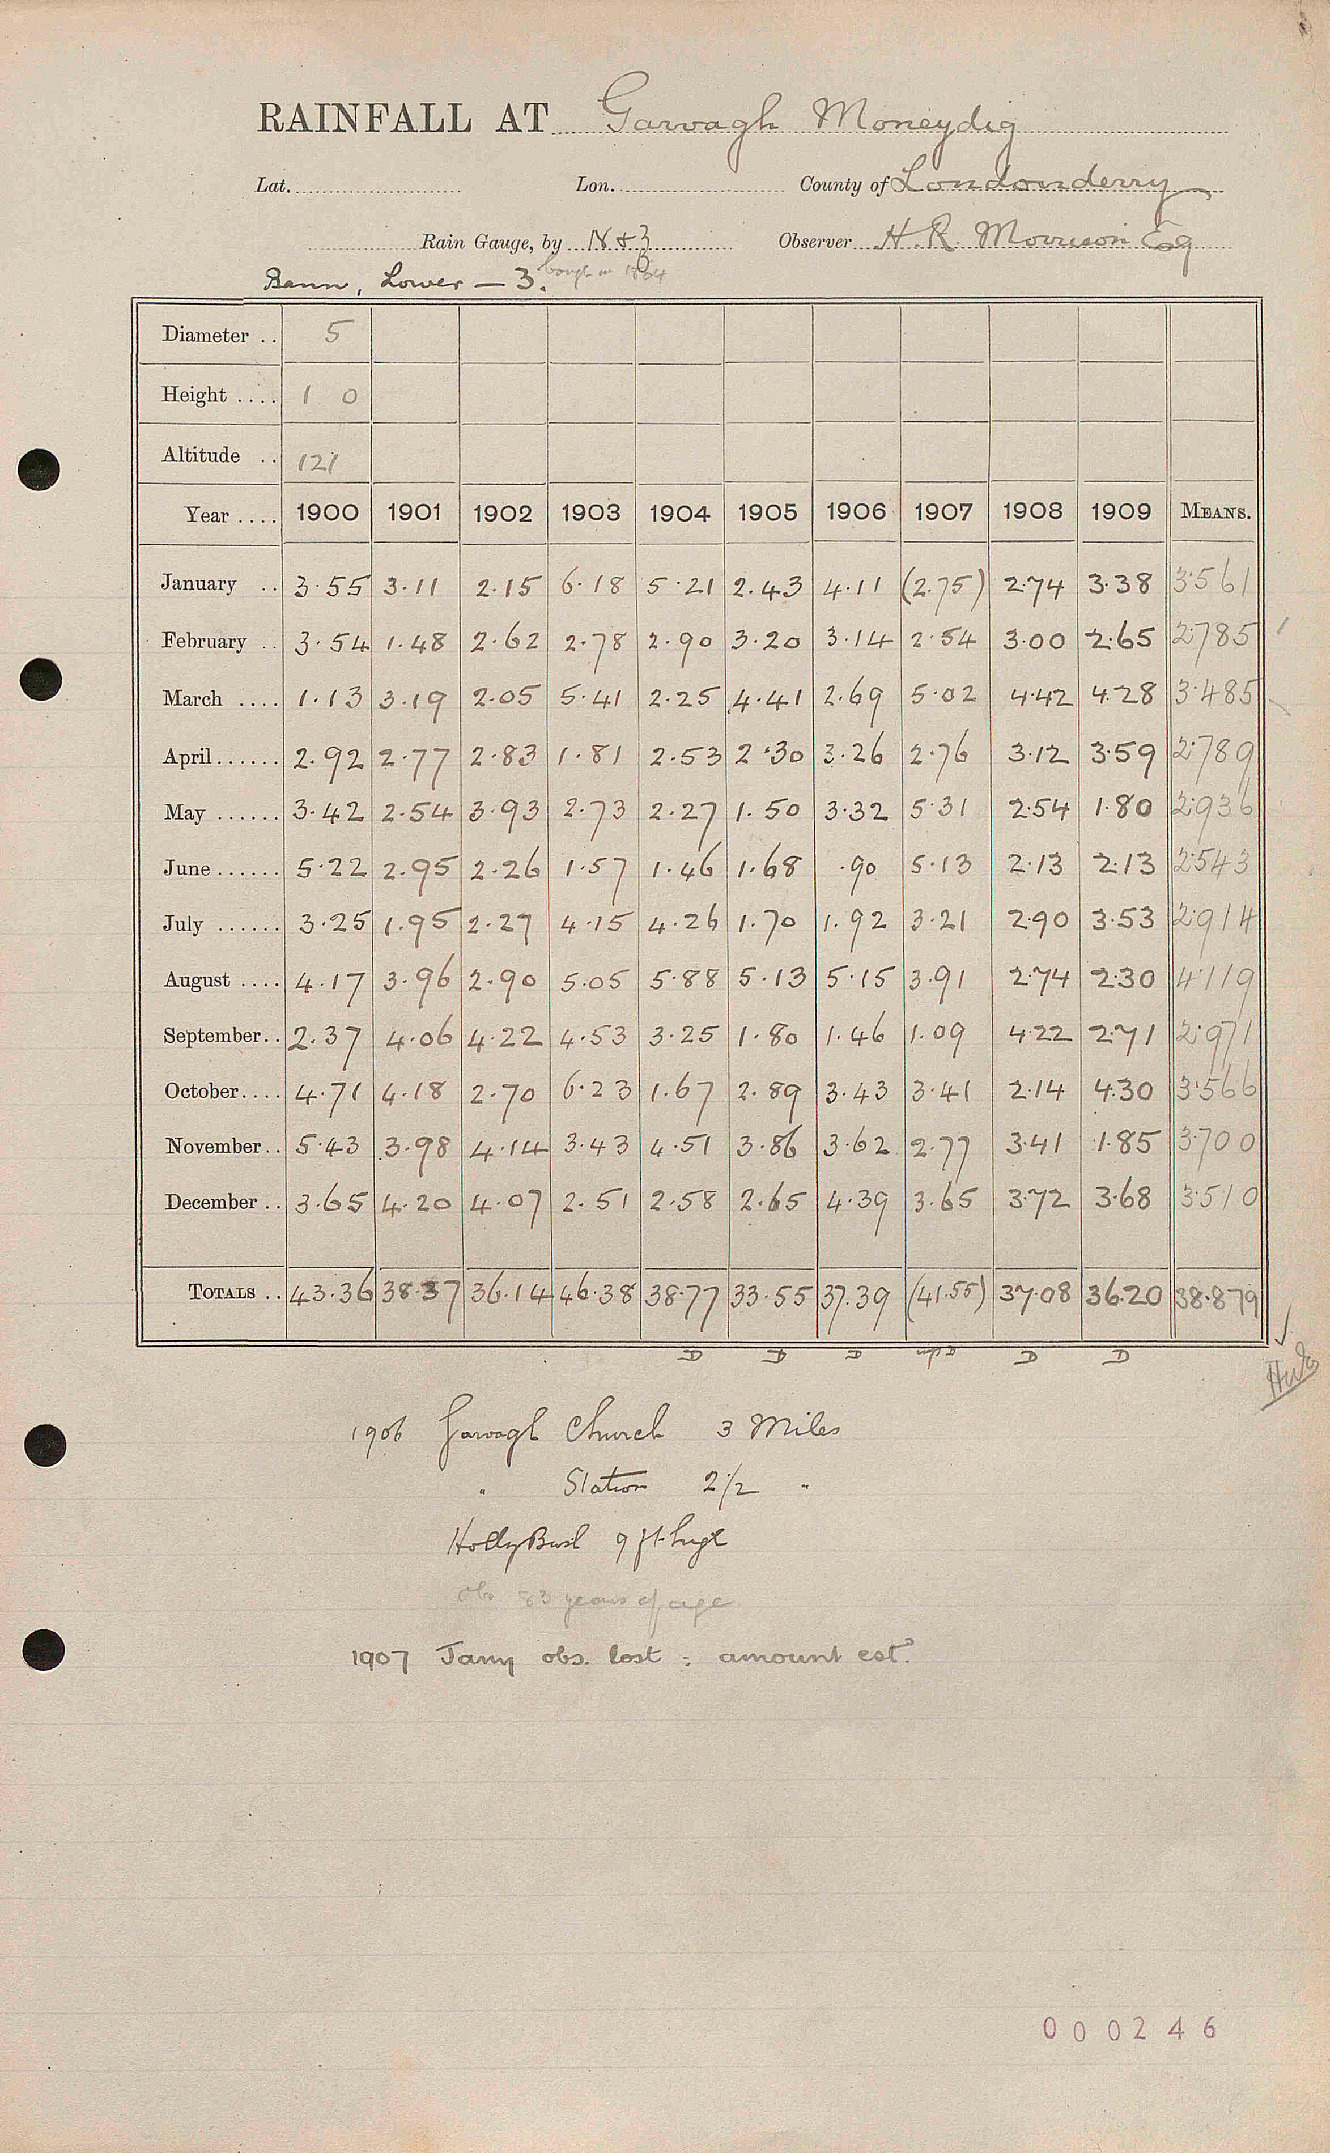 RAINFALL AT Garvagh Moneydig
Lat. Lon. County of Londonderry
Rain Gauge, by N & Z Observer H. R. Morrison Esq
Bann, Lower — 3. bought in 1864
Diameter .. 5
Height .... 1 0
Altitude .. 121
Year .... 1900 1901 1902 1903 1904 1905 1906 1907 1908 1909 MEANS.
January .. 3.55 3.11 2.15 6.18 5.21 2.43 4.11 (2.75) 2.74 3.38 3.561
February .. 3.54 1.48 2.62 2.78 2.90 3.20 3.14 2.54 3.00 2.65 2785
March .... 1.13 3.19 2.05 5.41 2.25 4.41 2.69 5.02 4.42 4.28 3.485
April...... 2.92 2.77 2.83 1.81 2.53 2.30 3.26 2.76 3.12 3.59 2.789
May ...... 3.42 2.54 3.93 2.73 2.27 1.50 3.32 5.31 2.54 1.80 2.936
June...... 5.22 2.95 2.26 1.57 1.46 1.68 .90 5.13 2.13 2.13 2.543
July ...... 3.25 1.95 2.27 4.15 4.26 1.70 1.92 3.21 2.90 3.53 2.914
August .... 4.17 3.96 2.90 5.05 5.88 5.13 5.15 3.91 2.74 2.30 4.119
September.. 2.37 4.06 4.22 4.53 3.25 1.80 1.46 1.09 4.22 2.71 2.971
October.... 4.71 4.18 2.70 6.23 1.67 2.89 3.43 3.41 2.14 4.30 3.566
November.. 5.43 3.98 4.14 3.43 4.51 3.86 3.62 2.77 3.41 1.85 3.700
December .. 3.65 4.20 4.07 2.51 2.58 2.65 4.39 3.65 3.72 3.68 3.510
TOTALS .. 43.36 38.37 36.14 46.38 38.77 33.55 37.39 (41.55) 37.08 36.20 38.879
D D D D D
1906 Garvagh Church 3 Miles
" Station 2 1/2 "
Holly Bush 9 ft high
obs 83 years of age
1907 Jany obs. lost : amount estd.
000246